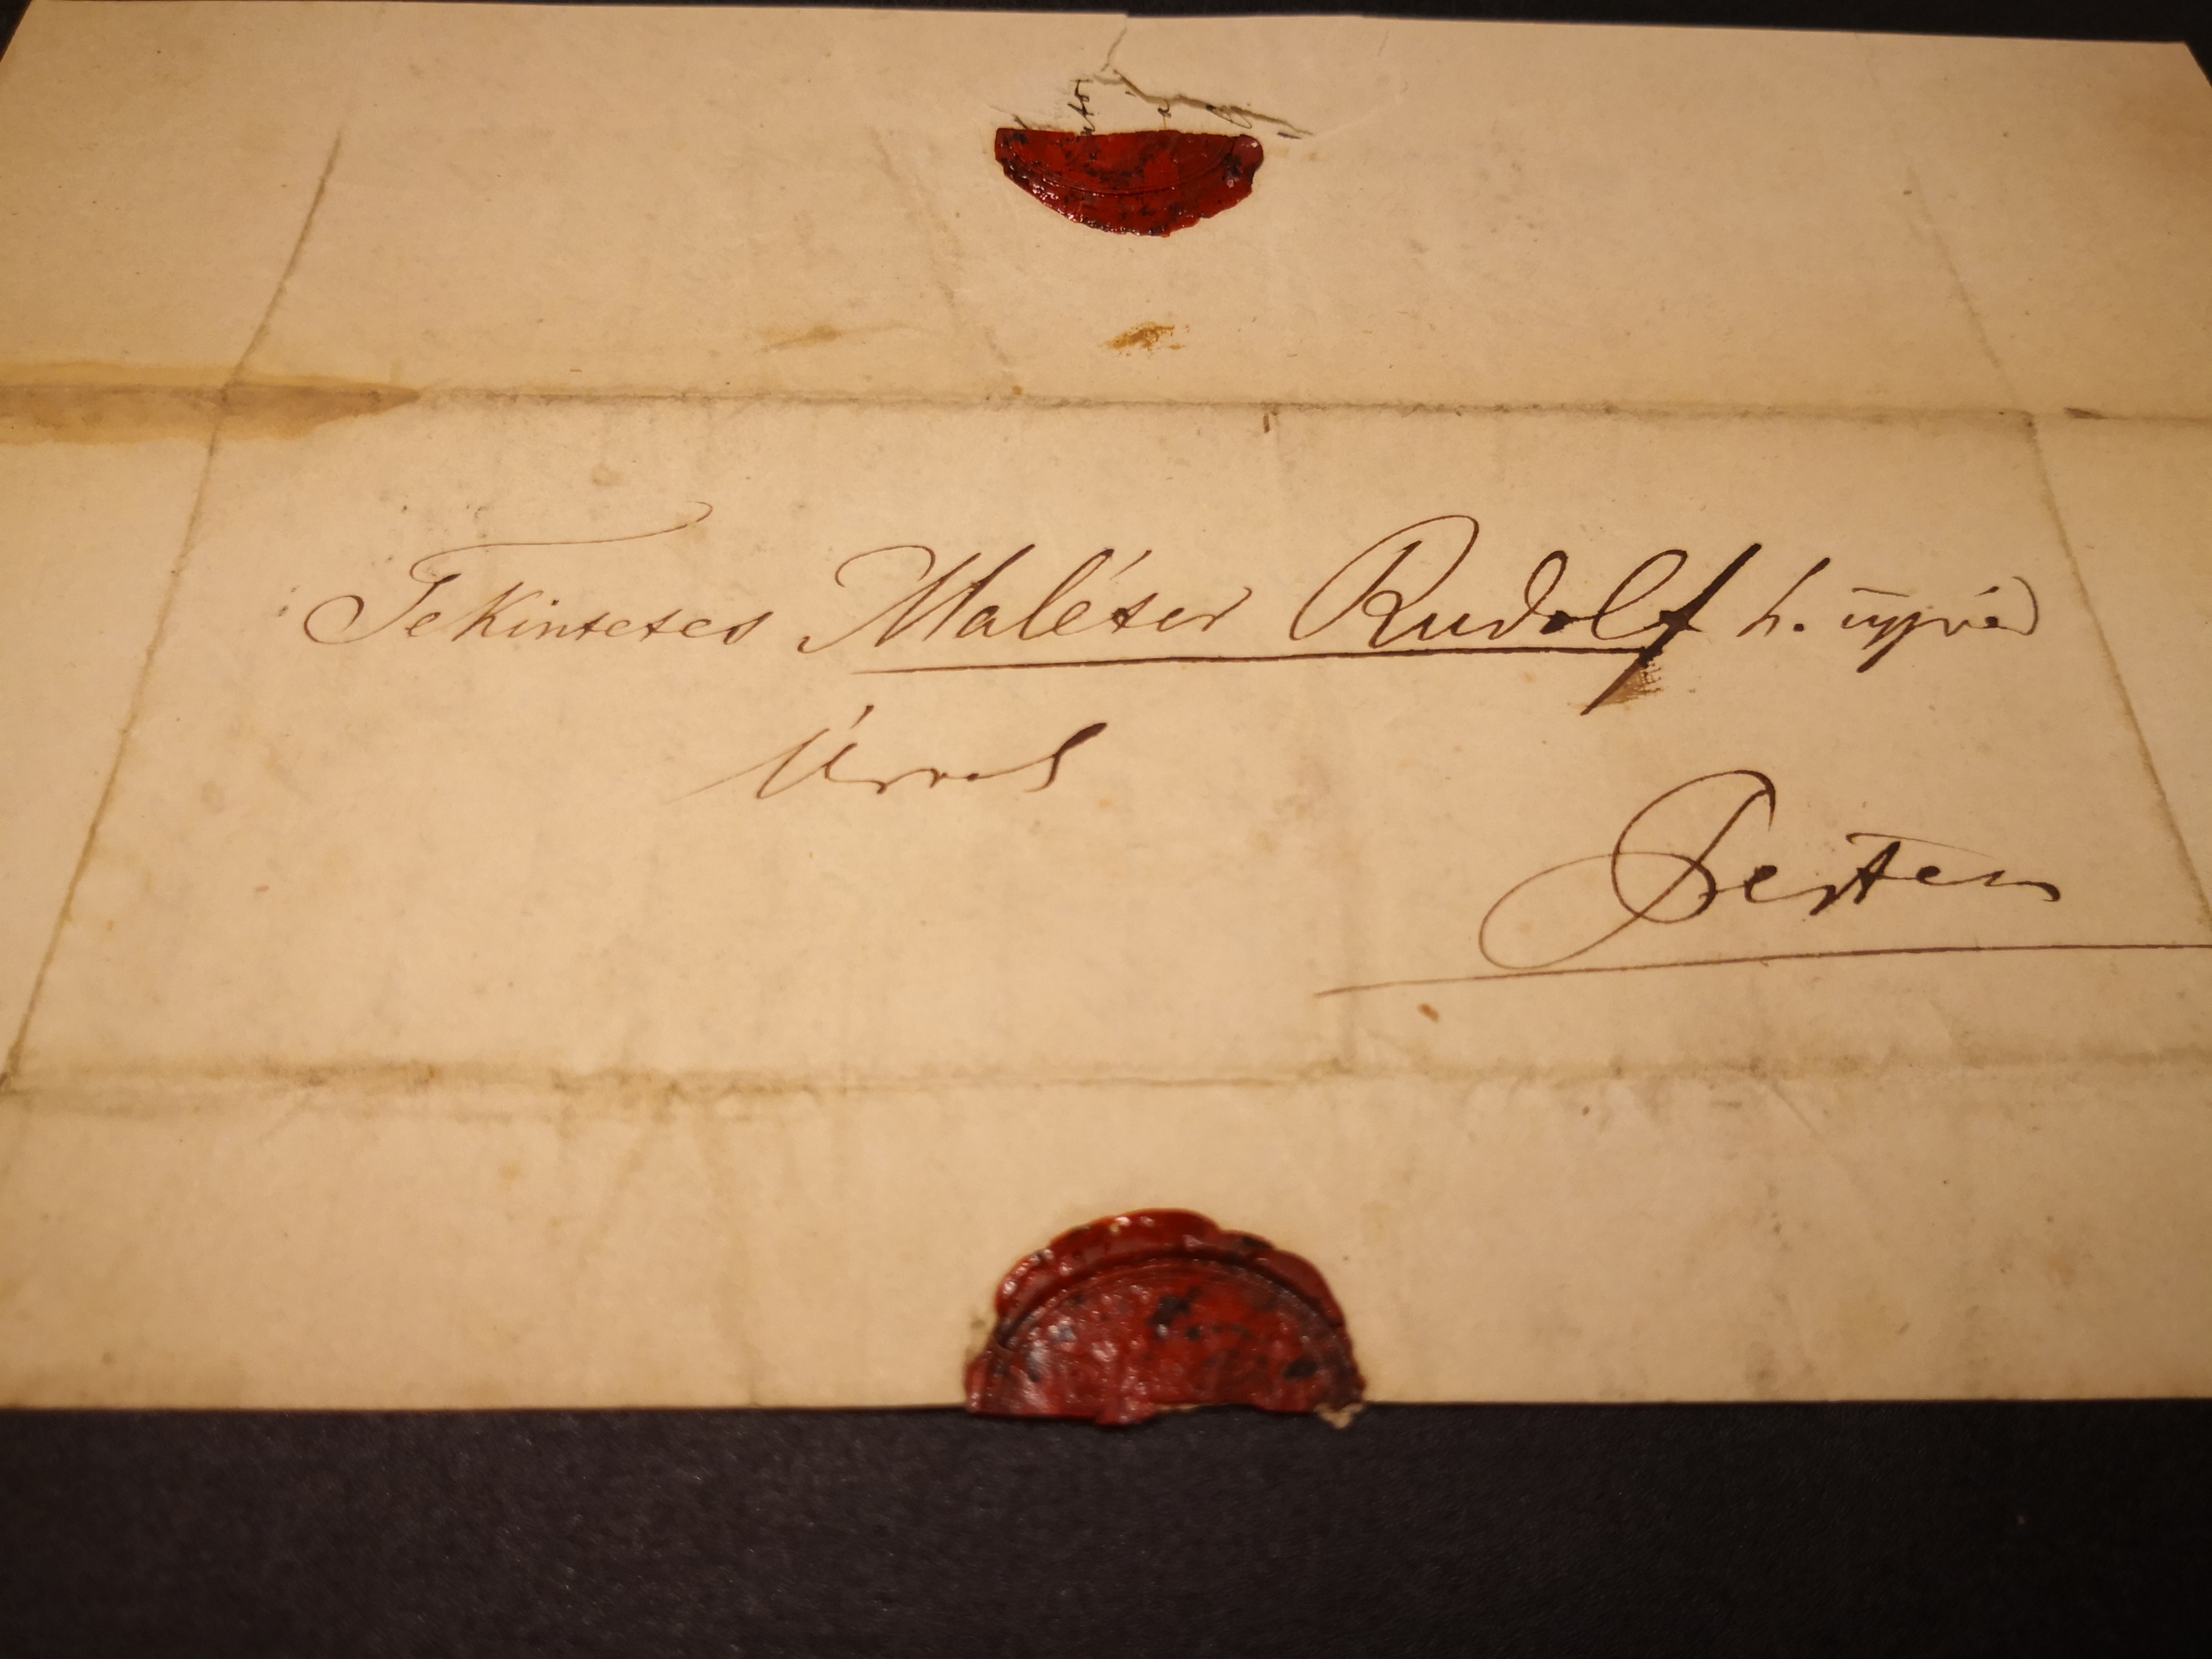 Tekintetes Maléter Rudolf h. ügyvéd
Úrnak
Pesten